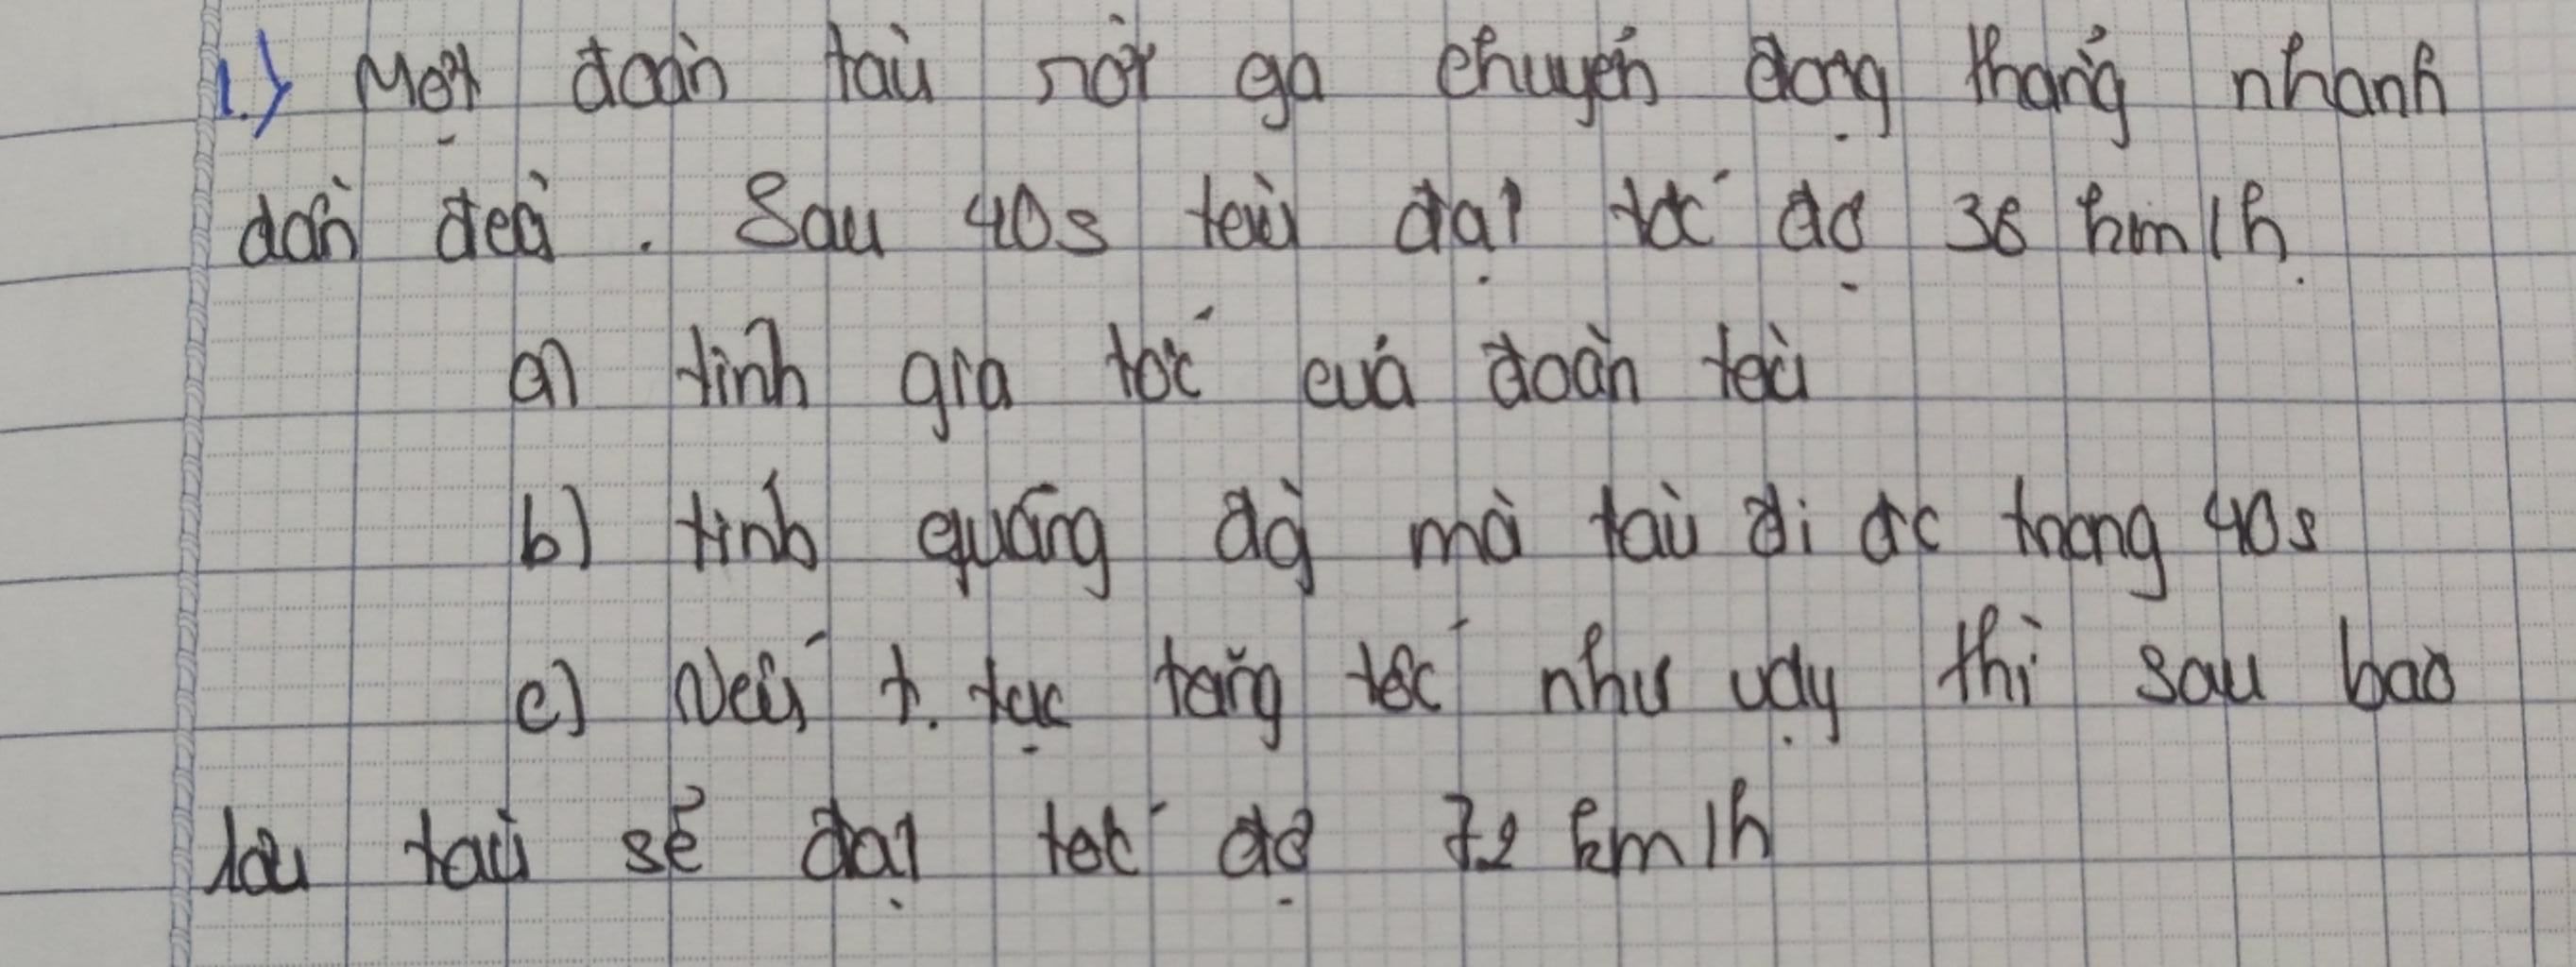 1.) Một đoàn tàu rời ga chuyển động thẳng nhanh
dần đều. Sau 40s tàu đạt tốc độ 36 km/h.
a) tính gia tốc của đoàn tàu
b) tính quãng đg̀ mà tàu đi đc trong 40s
c) Nếu t. tục tăng tốc như vậy thì sau bao
lâu tàu sẽ đạt tốc độ 72 km/h